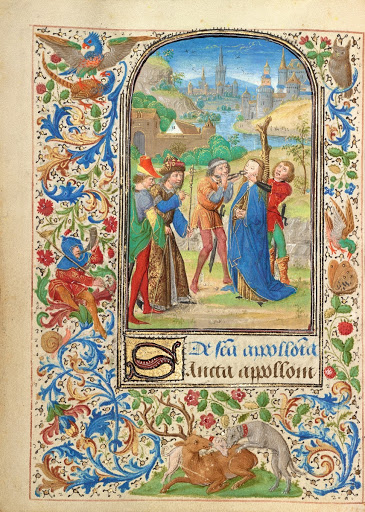 De sca appollonia
Sancta appolloni